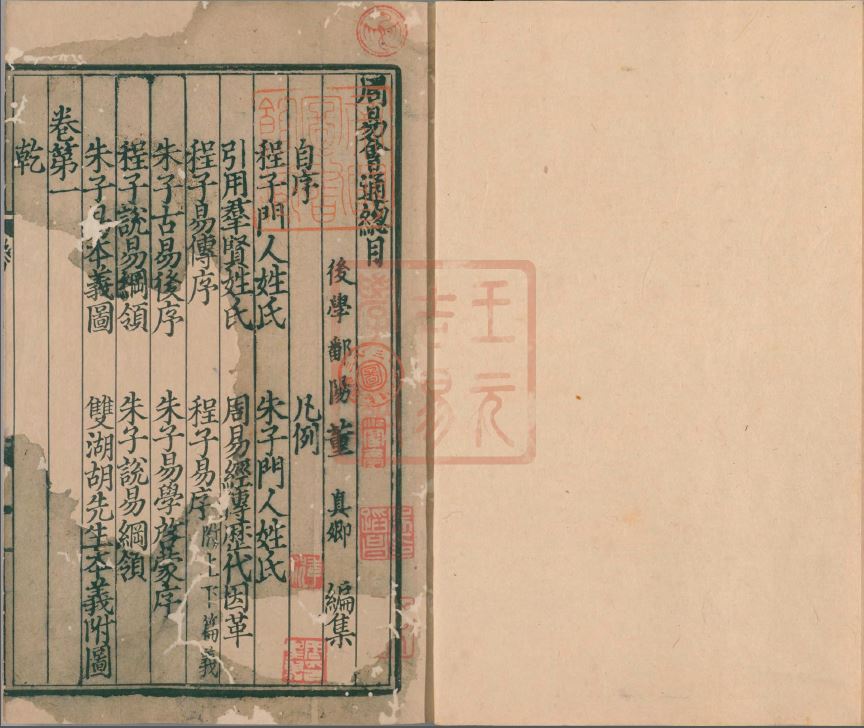 周易會通總目
後學鄱陽董真卿編集
自序 凡例
程子門人姓氏 朱子門人姓氏
引用羣賢姓氏 周易經傳歷代因革
程子易傳序 程子易序附上下篇義
朱子古易後序 朱子易學啓蒙序
程子說易綱領 朱子說易綱領
朱子易本義圖 雙湖胡先生本義附圖
卷第一
乾